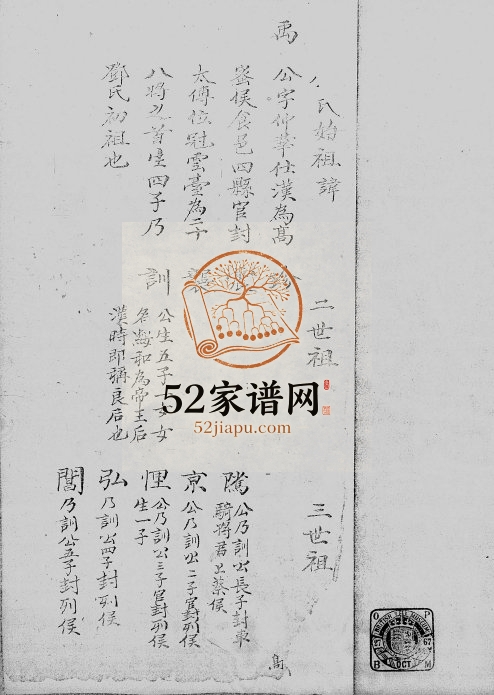 氏始祖諱
禹
公字仲華仕漢為高
密侯食邑四縣官封
太傅位冠雲臺為二十
八將之首生四子乃
鄧氏初祖也
二世祖
訓
公生五子一女女
名綏和為帝王后
漢時即稱良后也
三世祖
隲
公乃訓公長子封車
騎將君上蔡侯
京
公乃訓公二子官封列侯
悝
公乃訓公三子官封列侯
生一子
弘
乃訓公四子封列侯
閶
乃訓公五子封列侯
52家谱网
52jiapu.com